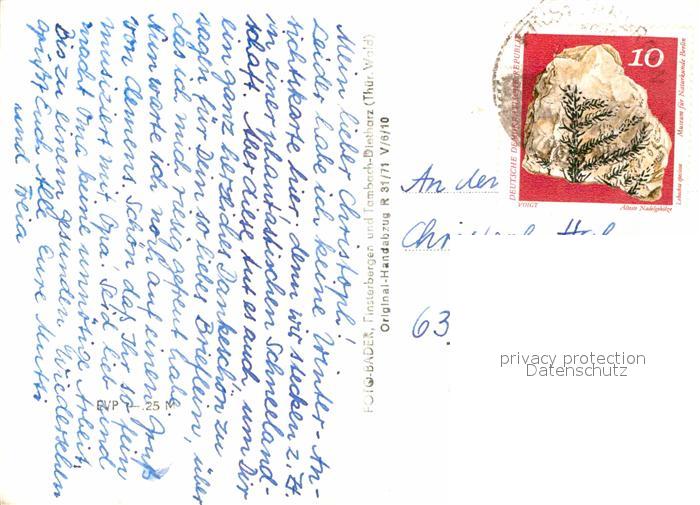 Mein lieber Christoph!
Leider habe ich keine Winter-An-
sichtskarte hier, denn wir stecken z. Zt.
in einer phantastischen Schneeland-
schaft. Aber diese tut es auch, um Dir
ein ganz herzliches Dankeschön zu
sagen für Dein so liebes Brieflein, über
das ich mich riesig gefreut habe.
Nun warte ich noch auf einen Gruß
von Clemens. Schön, daß Ihr so fein
musiziert mit Opa. Seid lieb und
macht Oma keine unnötige Arbeit!
Bis zu einem gesunden Wiedersehen
grüßt Euch alle Eure Mutti
und Freia
EVP —.25 M
FOTO-BADER, Finsterbergen und Tambach-Dietharz (Thür. Wald)
Original-Handabzug R 31/71 V/6/10
DEUTSCHE DEMOKRATISCHE REPUBLIK
10
Museum für Naturkunde Berlin
Lebachia speciosa
VOIGT
Älteste Nadelgehölze
An den
63
privacy protection
Datenschutz